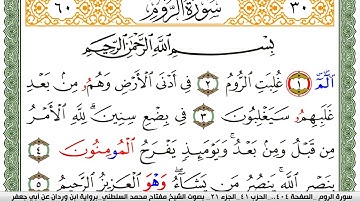 ٦٠ سُورَةُ الرُّومِ ٣٠
بِسْمِ اللَّهِ الرَّحْمَٰنِ الرَّحِيمِ
الٓمٓ ١ غُلِبَتِ الرُّومُ ٢ فِي أَدْنَى الْأَرْضِ وَهُمُ مِنْ بَعْدِ
غَلَبِهِمُ سَيَغْلِبُونَ ٣ فِي بِضْعِ سِنِينَ لِلَّهِ الْأَمْرُ
مِن قَبْلُ وَمِنْ بَعْدُ وَيَوْمَئِذٍ يَفْرَحُ الْمُومِنُونَ ٤
بِنَصْرِ اللَّهِ يَنصُرُ مَن يَشَاءُ وَهْوَ الْعَزِيزُ الرَّحِيمُ ٥
سورة الروم_الصفحة ٤٠٤.. الحزب ٤١_الجزء ٢١_بصوت الشيخ مفتاح محمد السلطني_برواية ابن وردان عن أبي جعفر